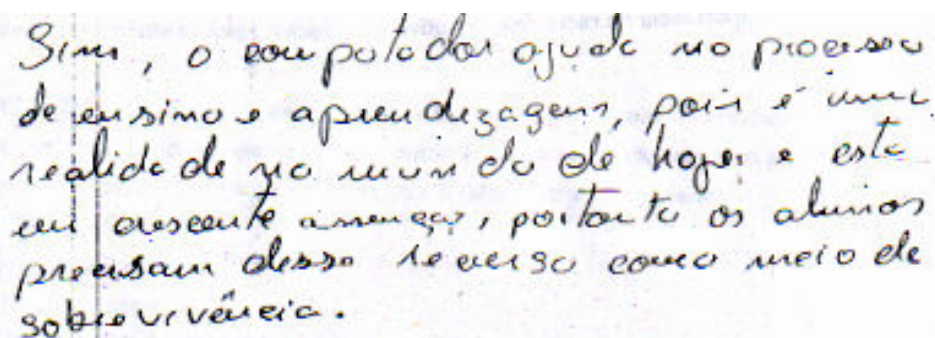 Sim, o computador ajuda no processo
de ensino e aprendizagem, pois é uma
realidade no mundo de hoje e está
em crescente, portanto os alunos
precisam desse recurso como meio de
sobrevivência.